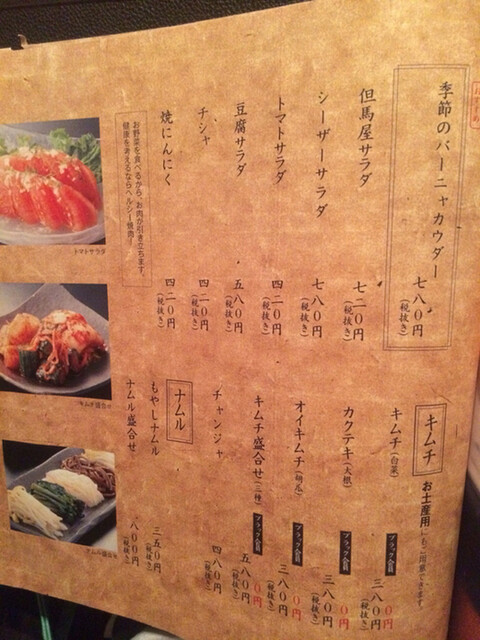 おすすめ
季節のバーニャカウダー
七八〇円
(税抜き)
但馬屋サラダ
七二〇円
(税抜き)
シーザーサラダ
七八〇円
(税抜き)
トマトサラダ
四二〇円
(税抜き)
豆腐サラダ
五八〇円
(税抜き)
チシャ
四二〇円
(税抜き)
焼にんにく
四二〇円
(税抜き)
お野菜を食べるから、お肉が引き立ちます。
健康を考えるならヘルシー焼肉!
トマトサラダ
キムチ盛合せ
ナムル盛合せ
キムチ
お土産用もご用意できます。
キムチ(白菜)
ブラック会員
〇円
三八〇円
(税抜き)
カクテキ(大根)
ブラック会員
〇円
三八〇円
(税抜き)
オイキムチ(胡瓜)
ブラック会員
〇円
三八〇円
(税抜き)
キムチ盛合せ(三種)
ブラック会員
〇円
五八〇円
(税抜き)
チャンジャ
四八〇円
(税抜き)
ナムル
もやしナムル
三五〇円
(税抜き)
ナムル盛合せ
八〇〇円
(税抜き)